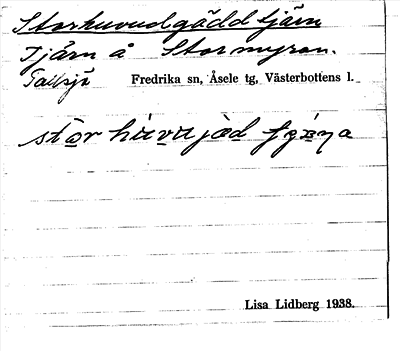 Storhuvudgäddtjärn
Tjärn å Stormyran.
Tallsjö Fredrika sn, Åsele tg, Västerbottens l.
stor huvujäd
Lisa Lidberg 1938.